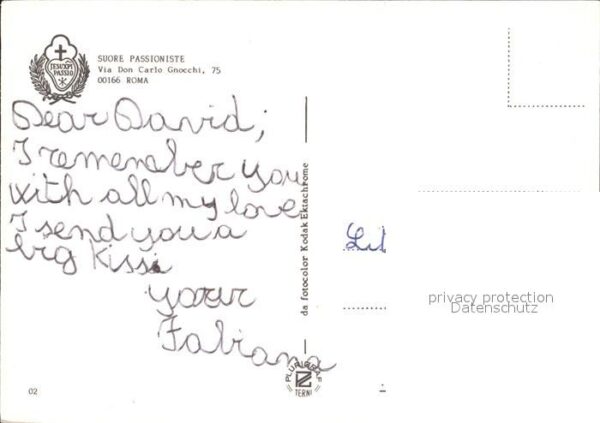 SUORE PASSIONISTE
Via Don Carlo Gnocchi, 75
00166 ROMA
JESU XPI
PASSIO
Dear David;
I remember you
with all my love
I send you a
big kiss
your
Fabiana
da fotocolor Kodak Ektachrome
PLURIGRAF
TERNI
02
privacy protection
Datenschutz